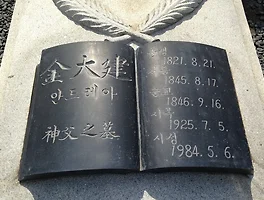 金大建
안드레아
神父之墓
1821. 8. 21.
1845. 8. 17.
순교
1846. 9. 16.
시복
1925. 7. 5.
시성
1984. 5. 6.